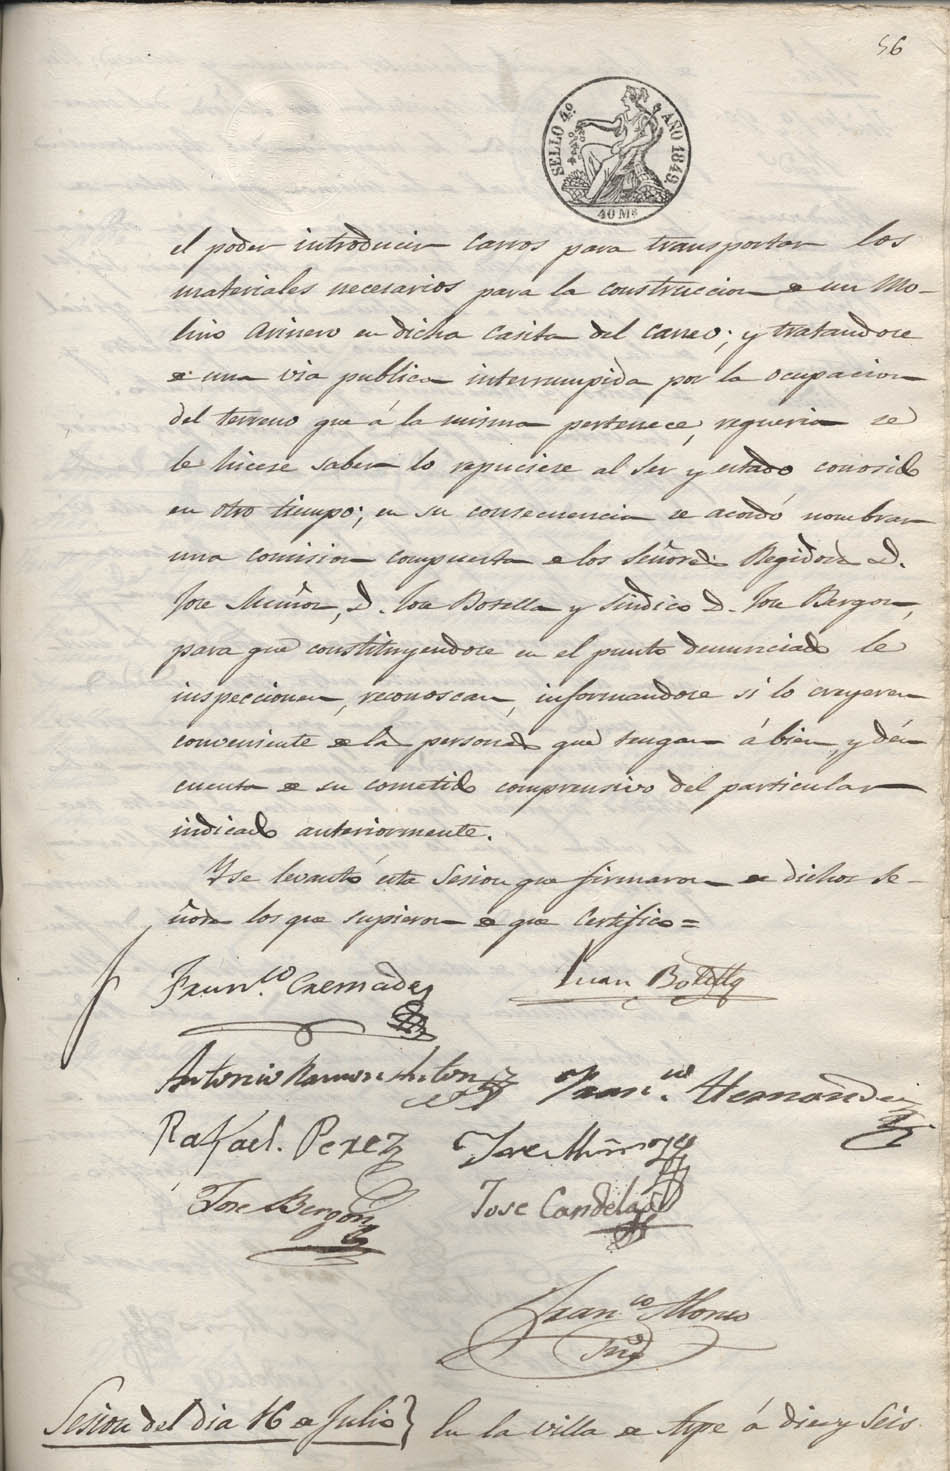 56
SELLO 4º AÑO 1849.
40 Mˢ
el poder introducir carros para transportar los
materiales necesarios para la construccion de un Mo-
lino Arinero en dicha Casita del Carreo; y tratandose
de una via publica interrumpida por la ocupacion
del terreno que á la misma pertenece, requeria se
le hiciese saber lo repusiese al ser y estado conosido
en otro tiempo; en su consecuencia se acordó nombrar
una comision compuesta de los Señores Regidores D.
Jose Muñoz, D. Jose Botella y Sindico D. Jose Bergon,
para que constituyendose en el punto denunciado le
inspeccionen, reconoscan, informandose si lo creyeren
conveniente de las personas que tengan á bien, y dén
cuenta de su cometido comprensivo del particular
indicado anteriormente.
Y se levantó esta Sesion que firmaron de dichos Se-
ñores los que supieron de que Certifico =
Franᶜᵒ. Cremades
Juan Botella
Antonio Ramon Anton
Franᶜᵒ. Hernandez
Rafael. Perez
Jose Muñoz
Jose Bergon
Jose Candela
Franᶜᵒ Alonso
Srio
Sesion del dia 16 de Julio } En la villa de Aspe á diez y seis